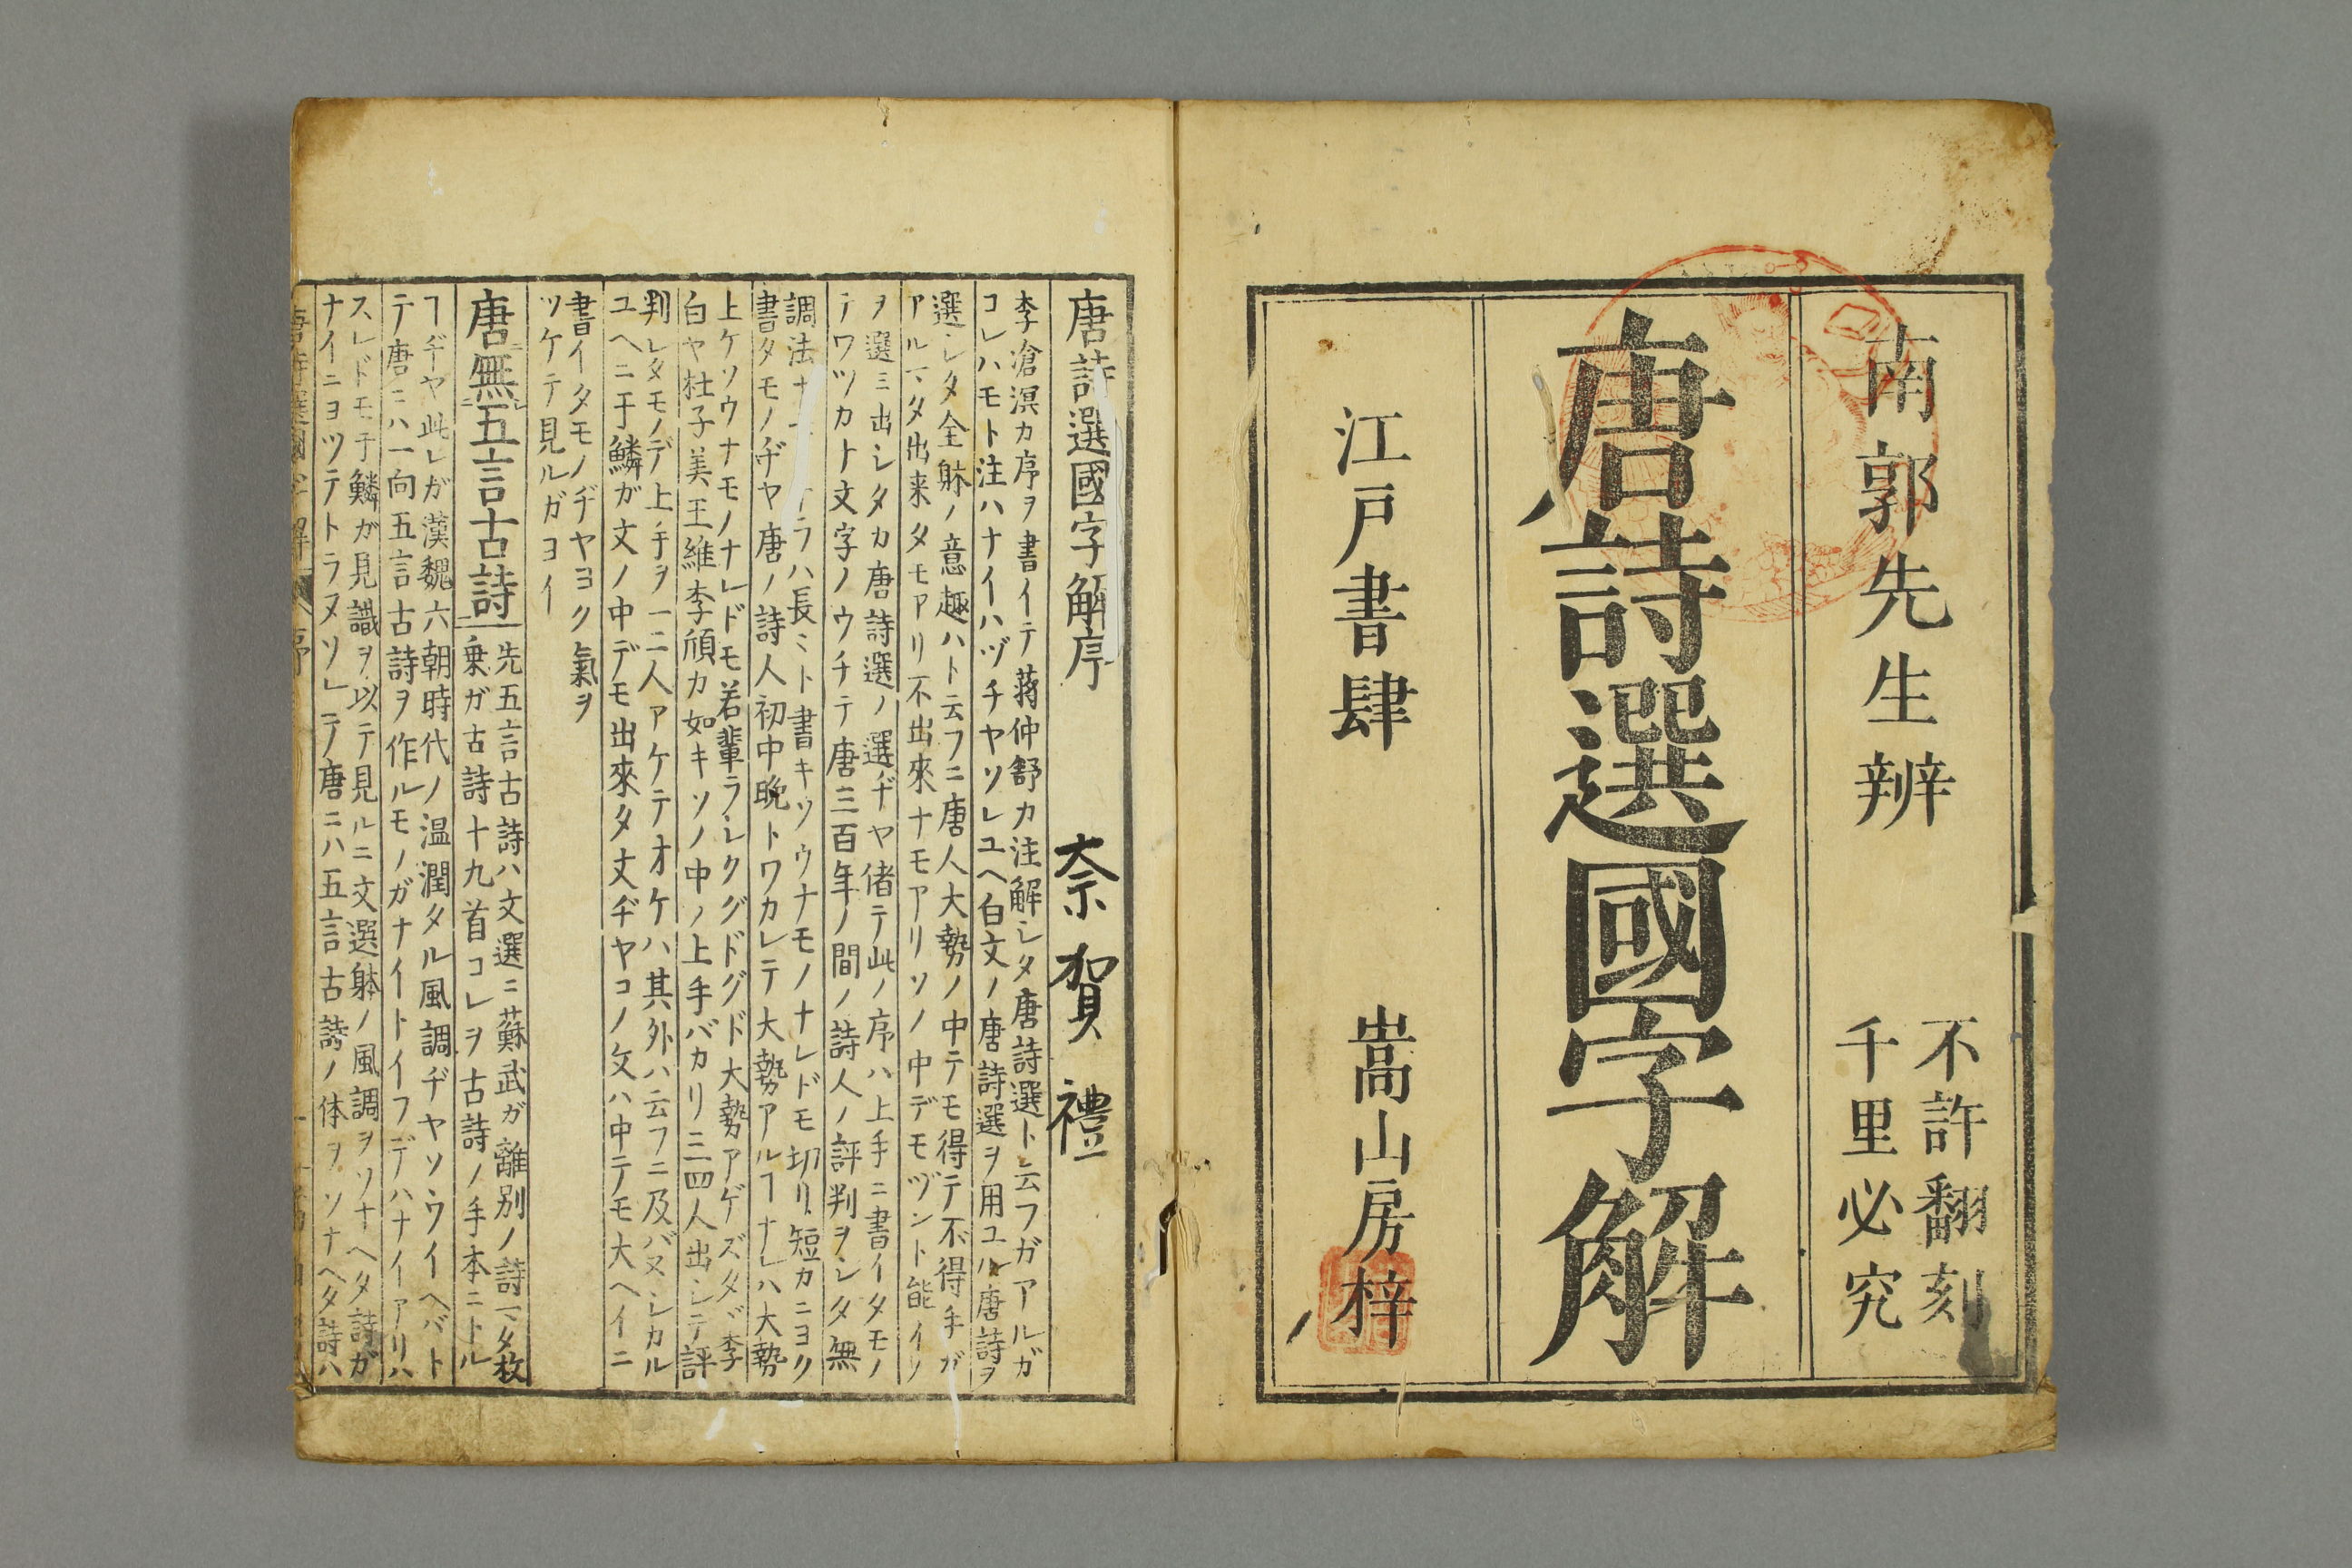 南郭先生辨
不許翻刻
千里必究
唐詩選國字解
江戸書肆
嵩山房梓
唐詩選國字解序
奈賀禮
李滄溟カ序ヲ書イテ蒋仲舒カ注解シタ唐詩選ト云フガアルガ
コレハモト注ハナイハヅヂヤソレユヘ白文ノ唐詩選ヲ用ユル唐詩ヲ
選シタ全躰ノ意趣ハト云フニ唐人大勢ノ中テモ得テ不得手ガ
アルマタ出来タモアリ不出來ナモアリソノ中デモヅント能イノ
ヲ選ミ出シタカ唐詩選ノ選ヂヤ偖テ此ノ序ハ上手ニ書イタモノ
テワツカト文字ノウチテ唐三百年ノ間ノ詩人ノ評判ヲシタ無
調法ナ
ラハ長ミト書キソウナモノナレドモ切リ短カニヨク
書タモノヂヤ唐ノ詩人初中晩トワカレテ大勢アルヿナレハ大勢
上ケソウナモノナレドモ若輩ラシクグドグド大勢アゲズタヾ李
白ヤ杜子美王維李頎カ如キソノ中ノ上手バカリ三四人出シテ評
判レタモノデ上手ヲ一二人アケテオケハ其外ハ云フニ及バヌシカル
ユヘニ于鱗ガ文ノ中デモ出來タ丈ヂヤコノ文ハ中テモ大ヘイニ
書イタモノヂヤヨク氣ヲ
ツケテ見ルガヨイ
唐無五言古詩
先五言古詩ハ文選ニ蘇武ガ離別ノ詩マタ枚
乗ガ古詩十九首コレヲ古詩ノ手本ニトル
ヿヂヤ此レガ漢魏六朝時代ノ温潤タル風調ヂヤソウイヘバト
テ唐ニハ一向五言古詩ヲ作ルモノガナイトイフデハナイアリハ
スレドモ于鱗ガ見識ヲ以テ見ルニ文選躰ノ風調ヲソナヘタ詩ガ
ナイニヨツテトラヌソ」テ唐ニハ五言古詩ノ体ヲソナヘタ詩ハ